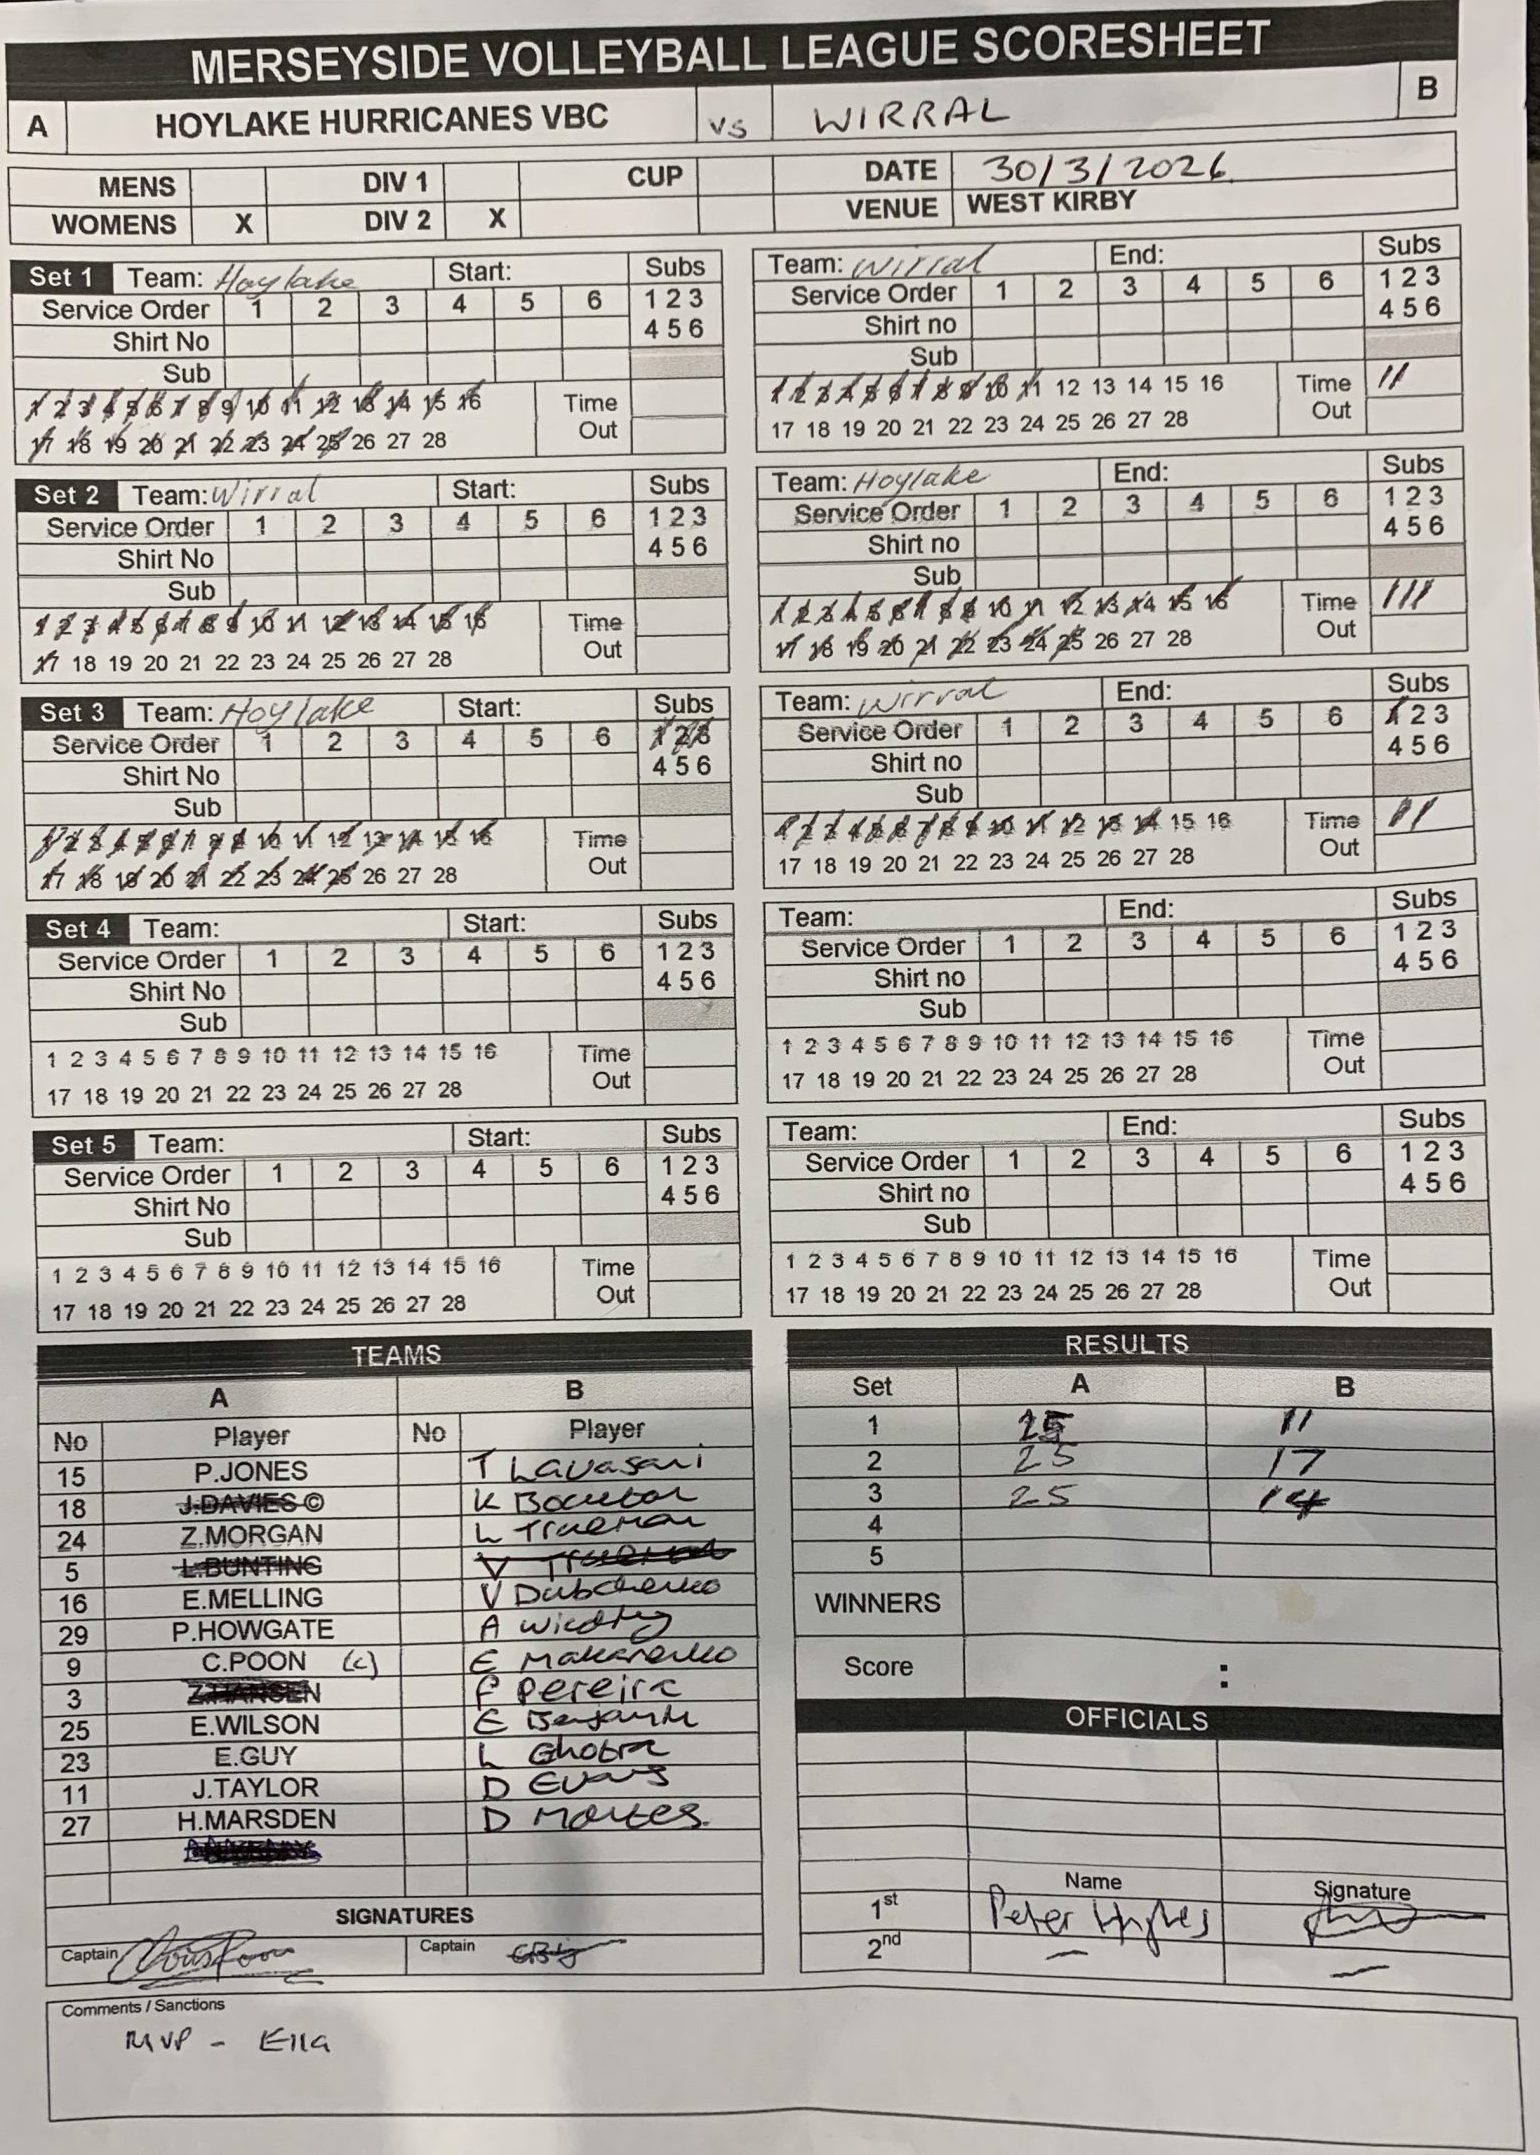 MERSEYSIDE VOLLEYBALL LEAGUE SCORESHEET
A HOYLAKE HURRICANES VBC vs WIRRAL B
MENS DIV 1 CUP DATE 30/3/2026
WOMENS X DIV 2 X VENUE WEST KIRBY
Set 1 Team: Hoylake Start: Subs
Service Order 1 2 3 4 5 6 1 2 3
Shirt No 4 5 6
Sub
1 2 3 4 5 6 7 8 9 10 11 12 13 14 15 16 Time
17 18 19 20 21 22 23 24 25 26 27 28 Out
Team: Wirral End: Subs
Service Order 1 2 3 4 5 6 1 2 3
Shirt no 4 5 6
Sub
1 2 3 4 5 6 7 8 9 10 11 12 13 14 15 16 Time 11
17 18 19 20 21 22 23 24 25 26 27 28 Out
Set 2 Team: Wirral Start: Subs
Service Order 1 2 3 4 5 6 1 2 3
Shirt No 4 5 6
Sub
1 2 3 4 5 6 7 8 9 10 11 12 13 14 15 16 Time
17 18 19 20 21 22 23 24 25 26 27 28 Out
Team: Hoylake End: Subs
Service Order 1 2 3 4 5 6 1 2 3
Shirt no 4 5 6
Sub
1 2 3 4 5 6 7 8 9 10 11 12 13 14 15 16 Time 111
17 18 19 20 21 22 23 24 25 26 27 28 Out
Set 3 Team: Hoylake Start: Subs
Service Order 1 2 3 4 5 6 1 2 3
Shirt No 4 5 6
Sub
1 2 3 4 5 6 7 8 9 10 11 12 13 14 15 16 Time
17 18 19 20 21 22 23 24 25 26 27 28 Out
Team: Wirral End: Subs
Service Order 1 2 3 4 5 6 1 2 3
Shirt no 4 5 6
Sub
1 2 3 4 5 6 7 8 9 10 11 12 13 14 15 16 Time 11
17 18 19 20 21 22 23 24 25 26 27 28 Out
Set 4 Team: Start: Subs
Service Order 1 2 3 4 5 6 1 2 3
Shirt No 4 5 6
Sub
1 2 3 4 5 6 7 8 9 10 11 12 13 14 15 16 Time
17 18 19 20 21 22 23 24 25 26 27 28 Out
Team: End: Subs
Service Order 1 2 3 4 5 6 1 2 3
Shirt no 4 5 6
Sub
1 2 3 4 5 6 7 8 9 10 11 12 13 14 15 16 Time
17 18 19 20 21 22 23 24 25 26 27 28 Out
Set 5 Team: Start: Subs
Service Order 1 2 3 4 5 6 1 2 3
Shirt No 4 5 6
Sub
1 2 3 4 5 6 7 8 9 10 11 12 13 14 15 16 Time
17 18 19 20 21 22 23 24 25 26 27 28 Out
Team: End: Subs
Service Order 1 2 3 4 5 6 1 2 3
Shirt no 4 5 6
Sub
1 2 3 4 5 6 7 8 9 10 11 12 13 14 15 16 Time
17 18 19 20 21 22 23 24 25 26 27 28 Out
TEAMS
A B
No Player No Player
15 P.JONES T Lavasani
18 J.DAVIES © K
24 Z.MORGAN L Trueman
5 L.BUNTING V Trueman
16 E.MELLING V Dubchenko
29 P.HOWGATE A
9 C.POON (c) E Makarenko
3 Z.HANSEN F Pereira
25 E.WILSON E Benjamin
23 E.GUY L Ghobra
11 J.TAYLOR D Evans
27 H.MARSDEN D Montes.
SIGNATURES
Captain Captain
RESULTS
Set A B
1 25 11
2 25 17
3 25 14
4
5
WINNERS
Score :
OFFICIALS
Name Signature
1st Peter Hughes
2nd –
Comments / Sanctions
MVP - Ella